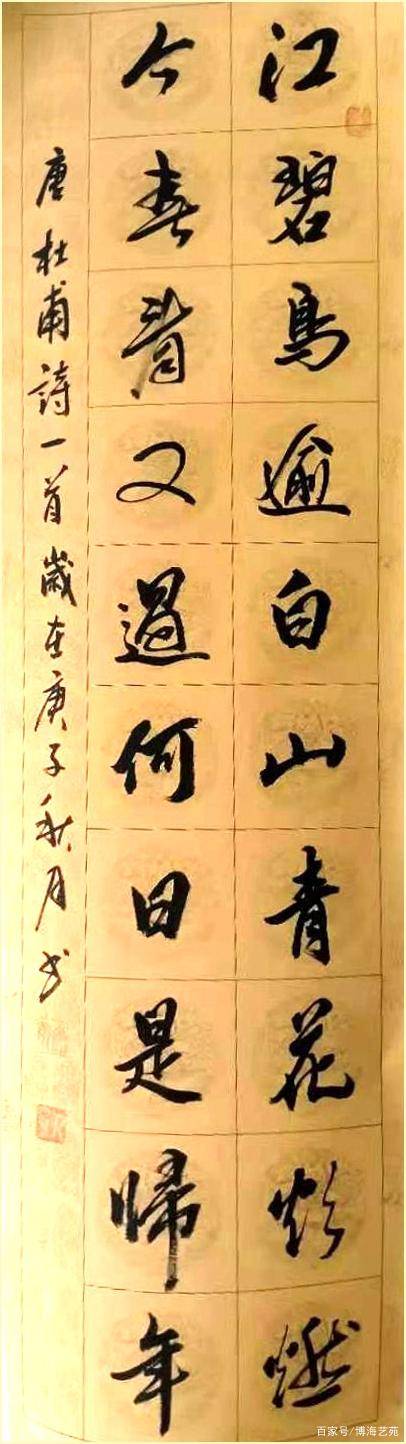 江碧鳥逾白山青花欲燃
今春看又過何日是歸年
唐杜甫詩一首歲在庚子秋月书
百家号/博海艺苑